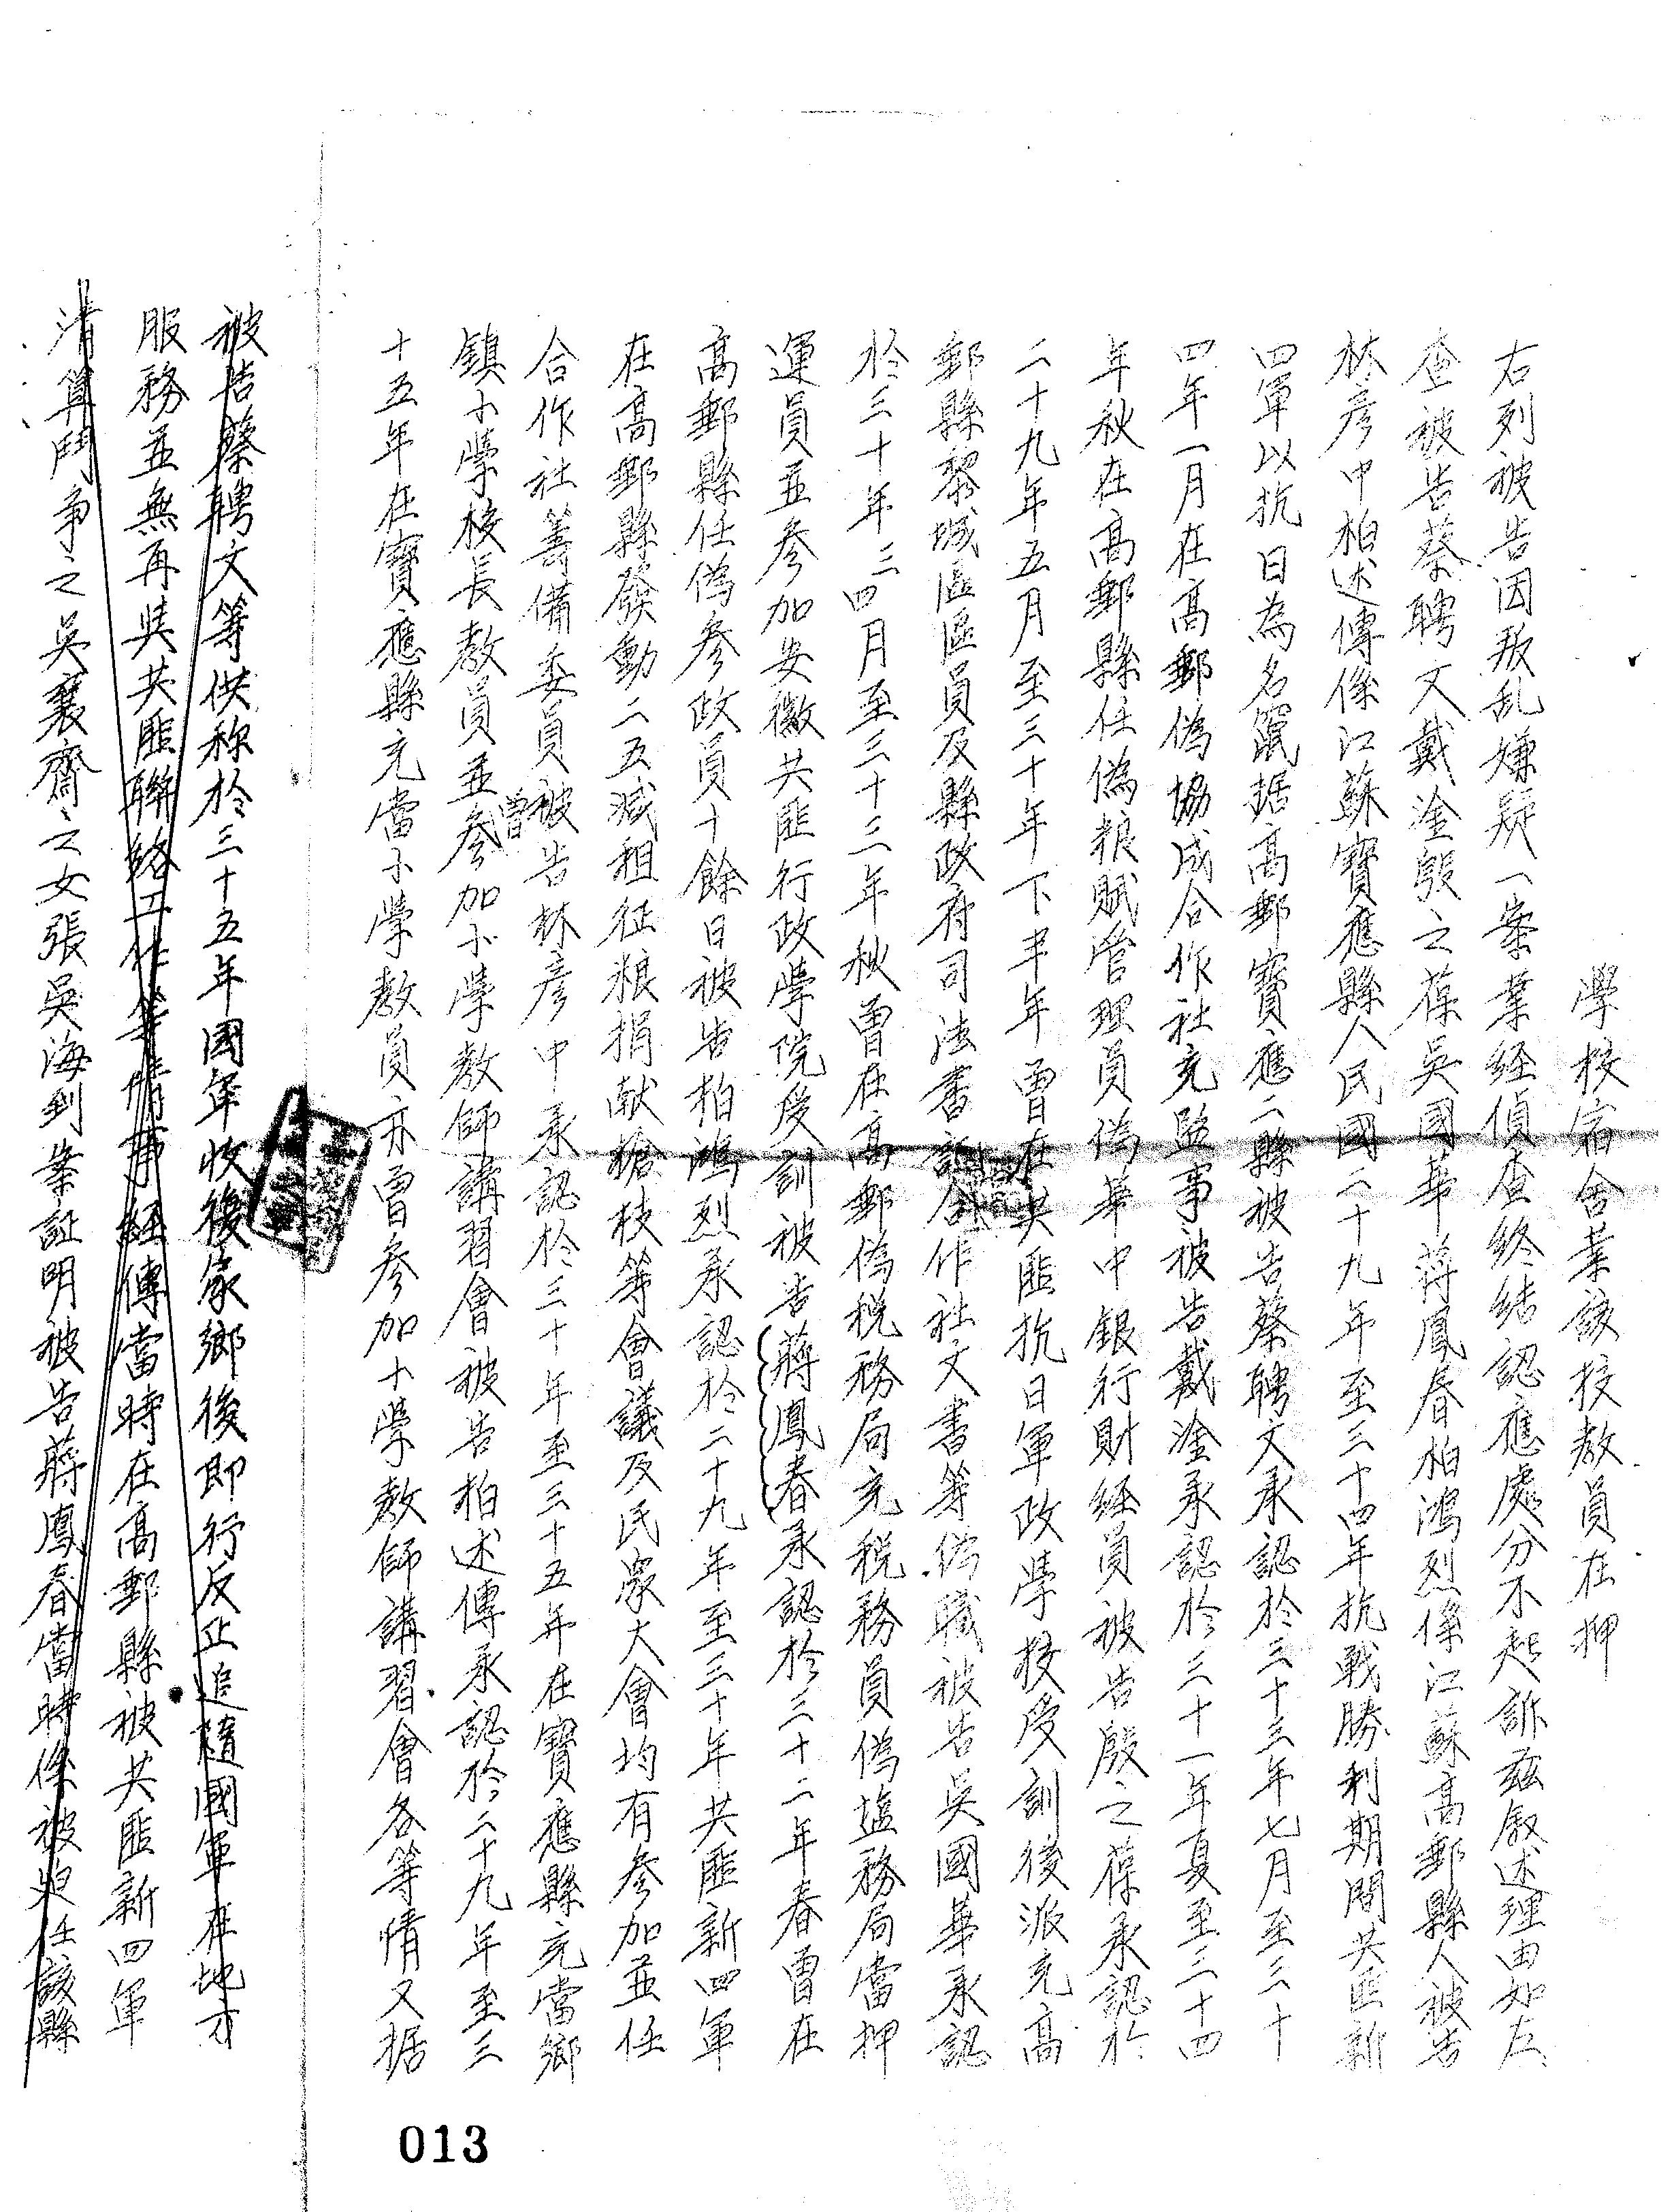 學校宿舍業該校教員在押
右列被告因叛乱嫌疑一案業経偵查終結認應處分不起訴茲叙述理由如左
查被告蔡聘文戴淦殷之葆吳國華蔣鳳春柏鴻烈係江蘇高郵縣人被告
林彥中柏述傳係江蘇寶應縣人民國二十九年至三十四年抗戰勝利期間共匪新
四軍以抗日為名竄据高郵寶應二縣被告蔡聘文承認於三十三年七月至三十
四年一月在高郵偽協成合作社充監事被告戴淦承認於三十一年夏至三十四
年秋在高郵縣任偽粮賦管理員偽華中銀行財経員被告殷之葆承認於
二十九年五月至三十年下半年曾在共匪抗日軍政學校受訓後派充高
郵縣黎城區區員及縣政府司法書記合作社文書等偽職被告吳國華承認
於三十年三四月至三十三年秋曾在高郵偽税務局充税務員偽塩務局當押
運員並參加安徽共匪行政學院受訓被告蔣鳳春承認於三十二年春曾在
高郵縣任偽參政員十餘日被告柏鴻烈承認於二十九年至三十年共匪新四軍
在高郵縣發動二五減租征粮捐献槍枝等會議及民眾大會均有參加並任
合作社籌備委員被告林彥中承認於三十年至三十五年在寶應縣充當鄉
鎮小學校長教員並曾參加小學教師講習會被告柏述傳承認於二十九年至三
十五年在寶應縣充當小學教員亦曾參加小學教師講習會各等情又据
被告蔡聘文等供称於三十五年國軍收復家鄉後即行反正追隨國軍在地方
服務並無再與共匪聯絡工作等情事経傳當時在高郵縣被共匪新四軍
清算鬥争之吳襄齋之女張吳海到案証明被告蔣鳳春當時係被迫任該縣
013